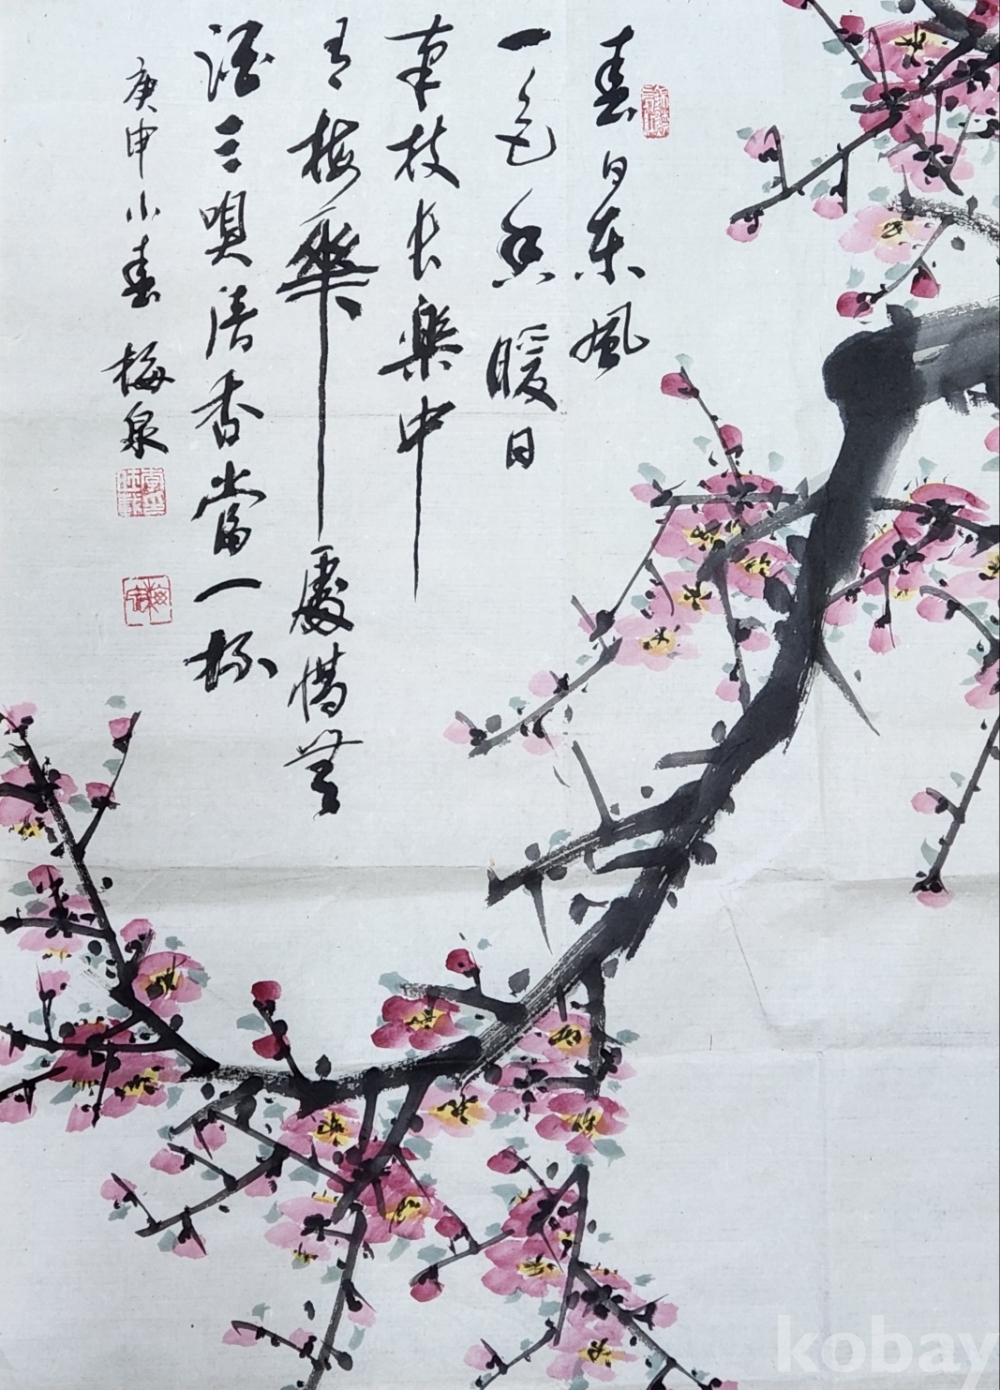 春日東風
一色香暖日
南枝長樂中
有梅華處惜無
酒三嗅清香當一杯
庚申小春 梅泉
kobay